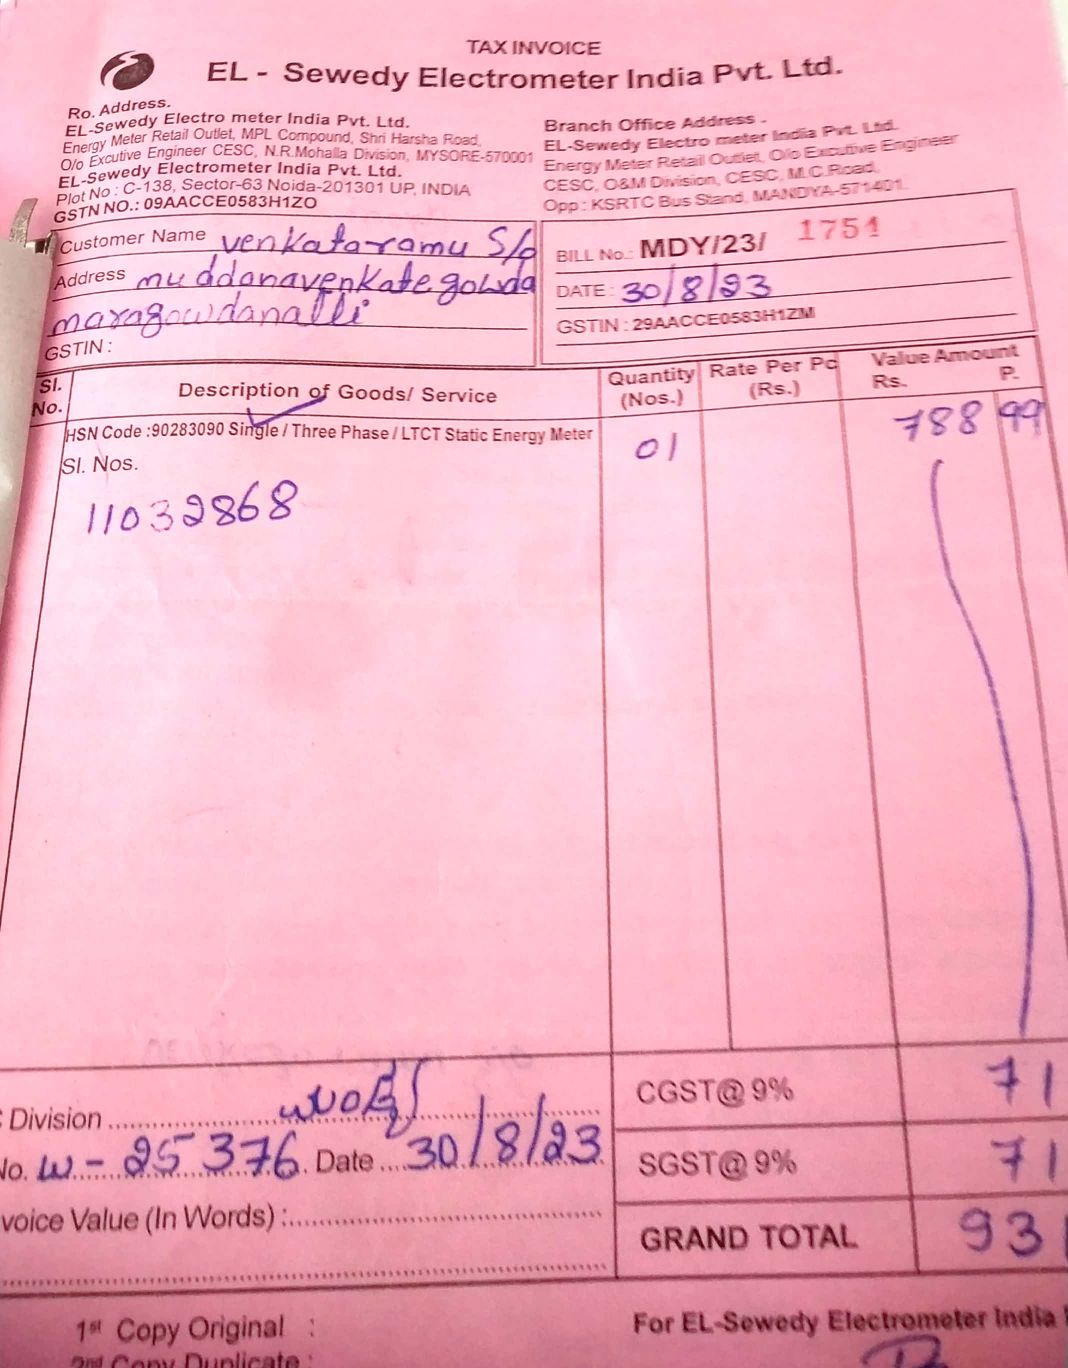 TAX INVOICE
EL - Sewedy Electrometer India Pvt. Ltd.
Ro. Address.
EL-Sewedy Electro meter India Pvt. Ltd.
Energy Meter Retail Outlet, MPL Compound, Shri Harsha Road,
O/o Excutive Engineer CESC, N.R.Mohalla Division, MYSORE-570001
EL-Sewedy Electrometer India Pvt. Ltd.
Plot No : C-138, Sector-63 Noida-201301 UP, INDIA
GSTN NO.: 09AACCE0583H1ZO
Branch Office Address -
EL-Sewedy Electro meter India Pvt. Ltd.
Energy Meter Retail Outlet, O/o Excutive Engineer
CESC, O&M Division, CESC, M.C.Road,
Opp : KSRTC Bus Stand, MANDYA-571401.
Customer Name venkataramu S/o
Address muddanavenkategowda
maragowdanalli
GSTIN :
BILL No.: MDY/23/ 1751
DATE : 30/8/23
GSTIN : 29AACCE0583H1ZM
Sl. No. Description of Goods/ Service Quantity (Nos.) Rate Per Pc (Rs.) Value Amount Rs. P.
HSN Code :90283090 Single / Three Phase / LTCT Static Energy Meter 01 788 99
Sl. Nos.
11032868
Division
No. W - 25376. Date 30/8/23
voice Value (In Words) :
CGST@ 9% 71
SGST@ 9% 71
GRAND TOTAL 931
1st Copy Original :
2nd Copy Duplicate :
For EL-Sewedy Electrometer India